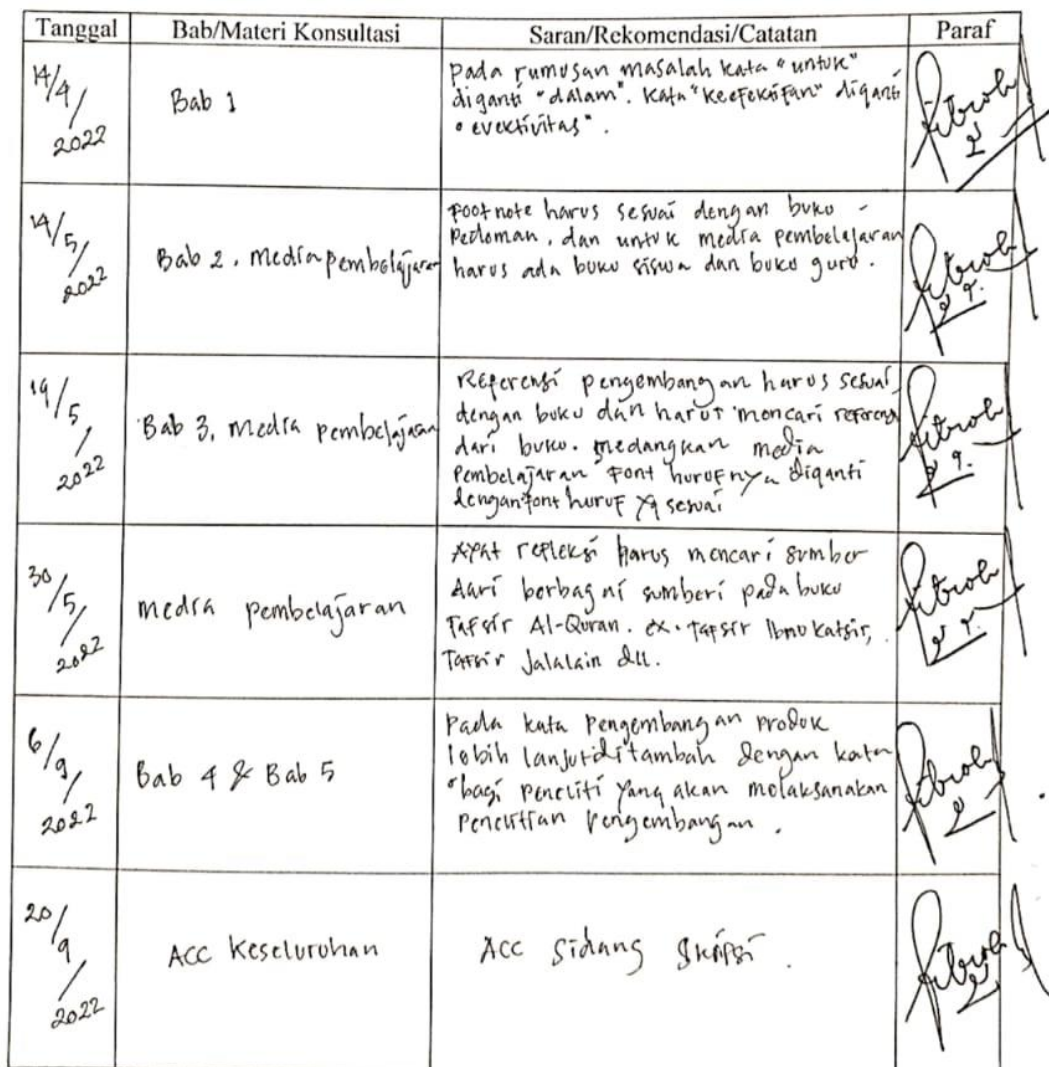 Tanggal Bab/Materi Konsultasi Saran/Rekomendasi/Catatan Paraf
14/4/2022
Bab 1
Pada rumusan masalah kata "untuk"
diganti "dalam". Kata "keefektifan" diganti
"evektivitas".
14/5/2022
Bab 2, Media pembelajaran
Footnote harus sesuai dengan buku -
Pedoman, dan untuk media pembelajaran
harus ada buku siswa dan buku guru.
19/5/2022
Bab 3, Media pembelajaran
Referensi pengembangan harus sesuai
dengan buku dan harus mencari referensi
dari buku. medangkan media
Pembelajaran Font hurufnya diganti
dengan font huruf yg sesuai
30/5/2022
media pembelajaran
Ayat refleksi harus mencari sumber
dari berbagai sumberi pada buku
Tafsir Al-Quran. ex. Tafsir Ibnu Katsir,
Tafsir Jalalain dll.
6/9/2022
Bab 4 & Bab 5
Pada kata Pengembangan Produk
lebih lanjut ditambah dengan kata
"bagi peneliti yang akan melaksanakan
Penelitian Pengembangan.
20/9/2022
ACC Keseluruhan
ACC Sidang Skripsi.